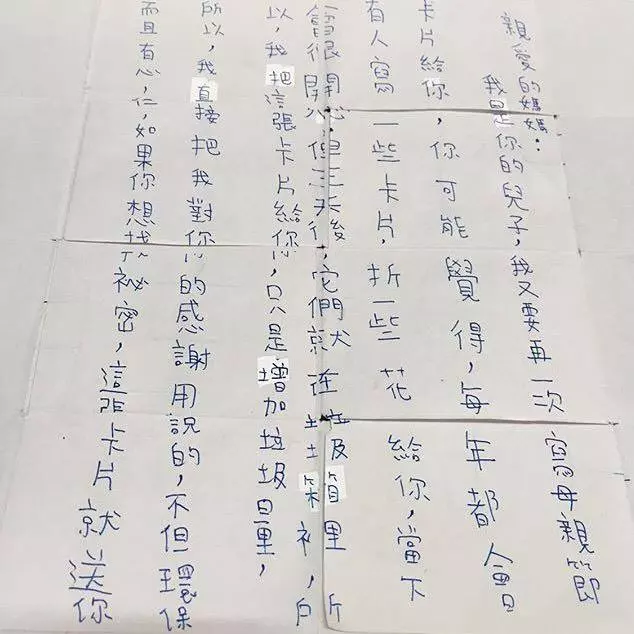 親愛的媽媽：
我是你的兒子，我又要再一次寫母親節
卡片給你，你可能覺得，每年都會
有人寫一些卡片，折一些花給你，當下
會很開心，但三天後，它們就在垃圾筒裡，所
以，我把這張卡片給你，只是增加垃圾量，
所以，我直接把我對你的感謝用說的，不但環保
而且有心，仁，如果你想找祕密，這張卡片就送你